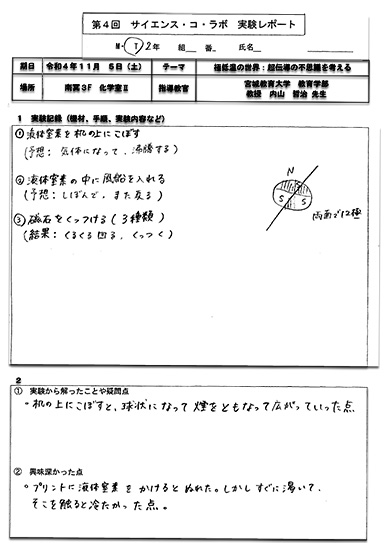 第4回 サイエンス・コ・ラボ 実験レポート
M・T 2年 組 番 氏名
期日 令和4年11月 5日(土) テーマ 極低温の世界:超伝導の不思議を考える
場所 南冥3F 化学室Ⅱ 指導教官 宮城教育大学 教育学部
教授 内山 哲治 先生
1 実験記録(機材、手順、実験内容など)
① 液体窒素を机の上にこぼす
(予想: 気体になって、沸騰する)
② 液体窒素の中に風船を入れる
(予想: しぼんで、また戻る)
③ 磁石をくっつける (3種類)
(結果: くるくる回る、くっつく)
N
S S
両面で12極
2
① 実験から解ったことや疑問点
・机の上にこぼすと、球状になって煙をともなって広がっていった点
② 興味深かった点
・プリントに液体窒素をかけるとぬれた。しかしすぐに渇いて、
そこを触ると冷たかった点。